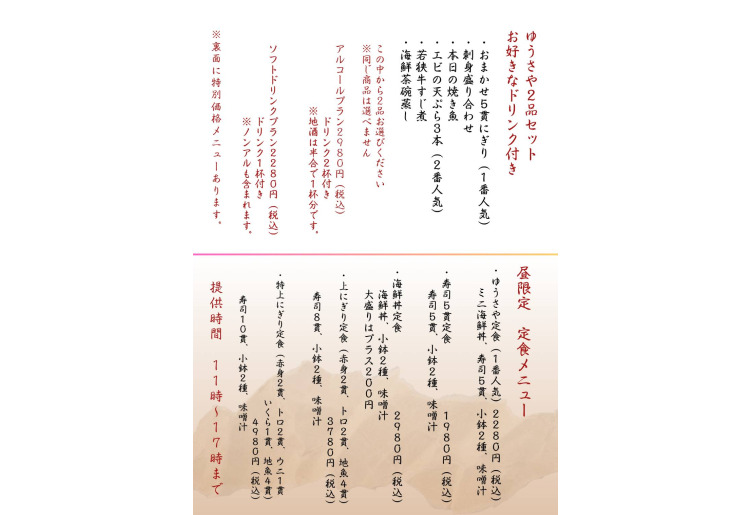 ゆうさや2品セット
お好きなドリンク付き
・おまかせ5貫にぎり(1番人気)
・刺身盛り合わせ
・本日の焼き魚
・エビの天ぷら3本(2番人気)
・若狭牛すじ煮
・海鮮茶碗蒸し
この中から2品お選びください
※同じ商品は選べません
アルコールプラン2980円(税込)
ドリンク2杯付き
※地酒は半合で1杯分です。
ソフトドリンクプラン2280円(税込)
ドリンク1杯付き
※ノンアルも含まれます。
※裏面に特別価格メニューあります。
昼限定 定食メニュー
・ゆうさや定食(1番人気)2280円(税込)
ミニ海鮮丼、寿司5貫、小鉢2種、味噌汁
・寿司5貫定食 1980円(税込)
寿司5貫、小鉢2種、味噌汁
・海鮮丼定食 2980円(税込)
海鮮丼、小鉢2種、味噌汁
大盛りはプラス200円
・上にぎり定食(赤身2貫、トロ2貫、地魚4貫)
3780円(税込)
寿司8貫、小鉢2種、味噌汁
・特上にぎり定食(赤身2貫、トロ2貫、ウニ1貫
いくら1貫、地魚4貫)
4980円(税込)
寿司10貫、小鉢2種、味噌汁
提供時間 11時~17時まで